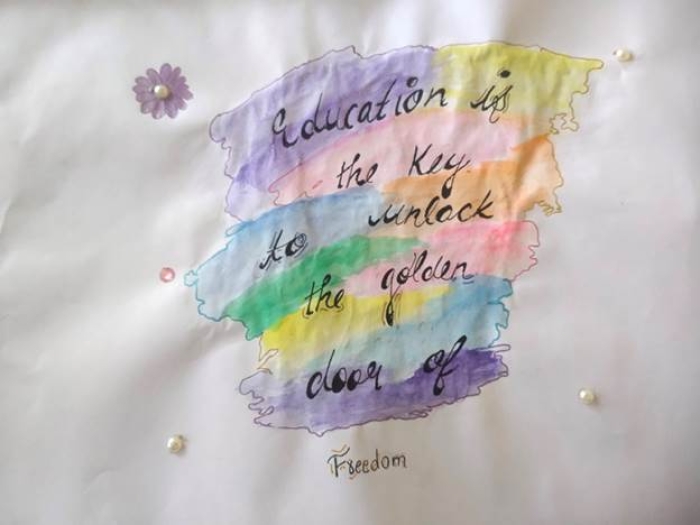 Education is
the Key
to unlock
the golden
door of
Freedom